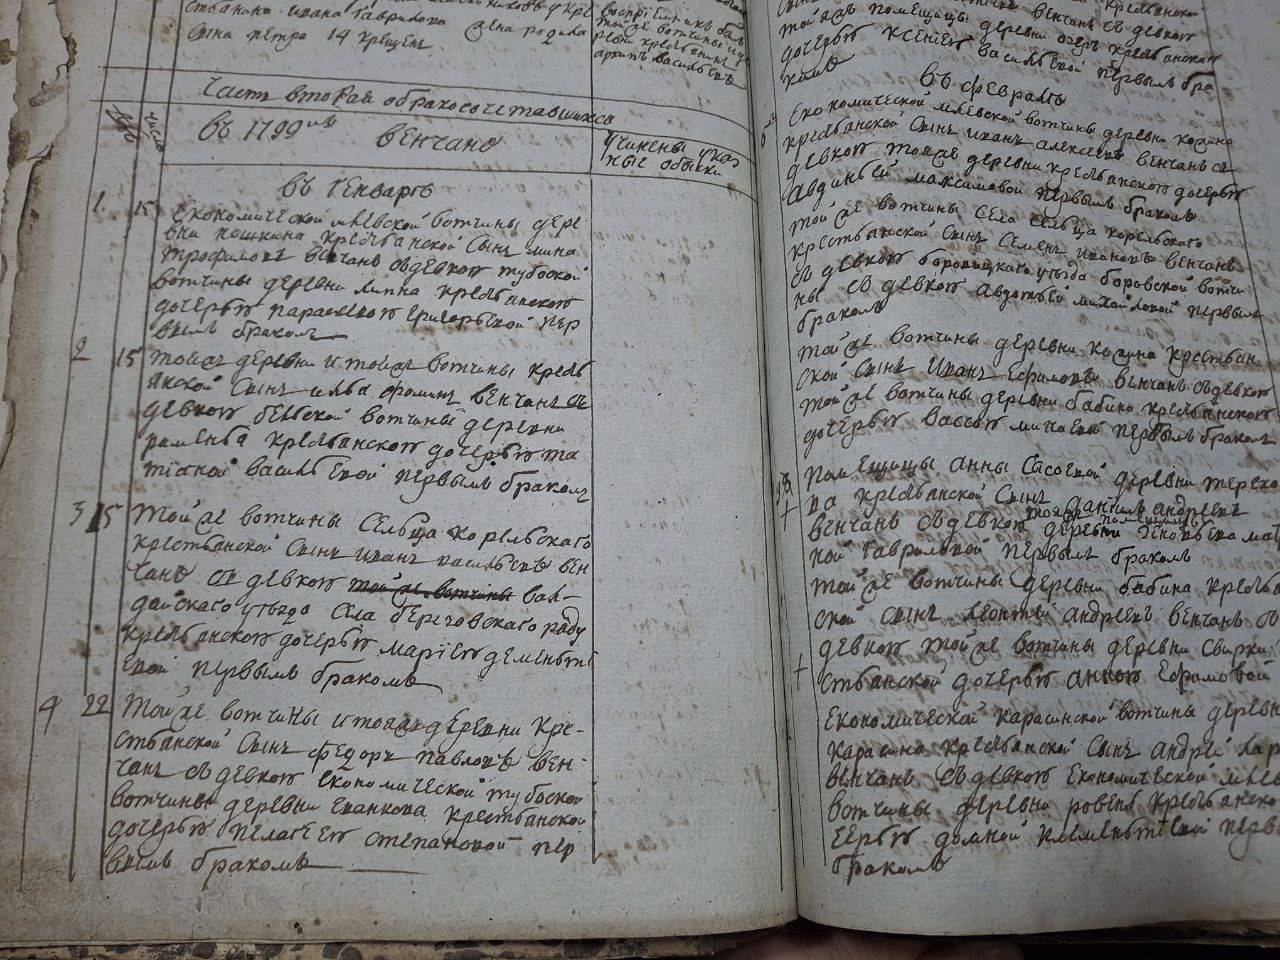 стьянина ивана Гаврилова жена родила
сына петра 14 крещен
воспріемник был
той же вотчины
крестьянин
архип васильевъ
Часть вторая о бракосочетавшихся
въ 1799мъ
венчано
учинены указ
ные обыски
въ генваре
1 15 Економической млевской вотчины дере
вни пешкина крестьянской сынъ мина
трофимовъ венчанъ съ девкою тубоской
вотчины деревни липна крестьянскою
дочерью парасковею григорьевой пер
вымъ бракомъ
2 15 той же деревни и той же вотчины кресть
янской сынъ илья фоминъ венчанъ съ
девкою бельской вотчины деревни
раменья крестьянскою дочерью та
тіяной васильевой первымъ бракомъ
3 15 той же вотчины сельца корельскаго
крестьянской сынъ иванъ васильевъ вен
чанъ съ девкою той же вотчины вал-
дайскаго уезда села береговскаго ряду
крестьянскою дочерью маріею дементье
вой первымъ бракомъ
4 22 той же вотчины и той же деревни кре-
стьянской сынъ федоръ павловъ вен-
чанъ съ девкою економической тубоской
вотчины деревни иванкова крестьянской
дочерью пелагеею степановой пер
вымъ бракомъ
венчанъ съ девкою
той же помещицы деревни озеръ крестьянскою
дочерью ксениею васильевой первымъ бра
комъ
въ феврале
Економической млевской вотчины деревни
крестьянской сынъ иванъ алексеевъ венчанъ съ
девкою той же деревни крестьянскою дочерью
авдотьей максимовой первымъ бракомъ
той же вотчины села сельца корельскаго
крестьянской сынъ семенъ ивановъ венчанъ
съ девкою боровицкаго уезда боровской вотчи
ны съ девкою авдотьей михайловой первымъ
бракомъ
той же вотчины деревни крестьян
ской сынъ иванъ ефимовъ венчанъ съ девкою
той же вотчины деревни бабина крестьянскою
дочерью вассою минаевой первымъ бракомъ
помещицы анны сысоевой деревни терехо
ва крестьянской сынъ даніилъ андреевъ
венчанъ съ девкою той же помещицы деревни
ной гавриловой первымъ бракомъ
той же вотчины деревни бабина кресть
ской сынъ леонтей андреевъ венчанъ съ
девкою той же вотчины деревни свирки
стьянской дочерью анною ефимовой
Економической карасинской вотчины деревн
карасина крестьянской сынъ андрей
венчанъ съ девкою економической млев
вотчины деревни ровень крестьянско
черью домной клементіевой перв
бракомъ